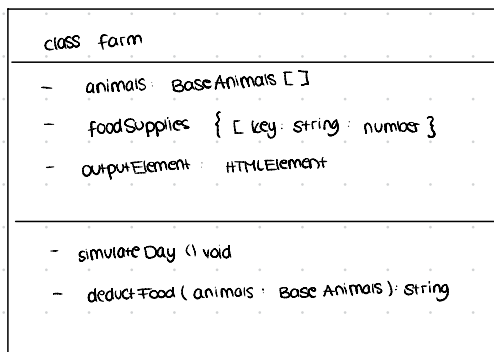 class farm
- animals: BaseAnimals []
- foodSupplies { [ key: string: number }
- outputElement: HTMLElement
- simulateDay () void
- deductFood (animals: Base Animals): string